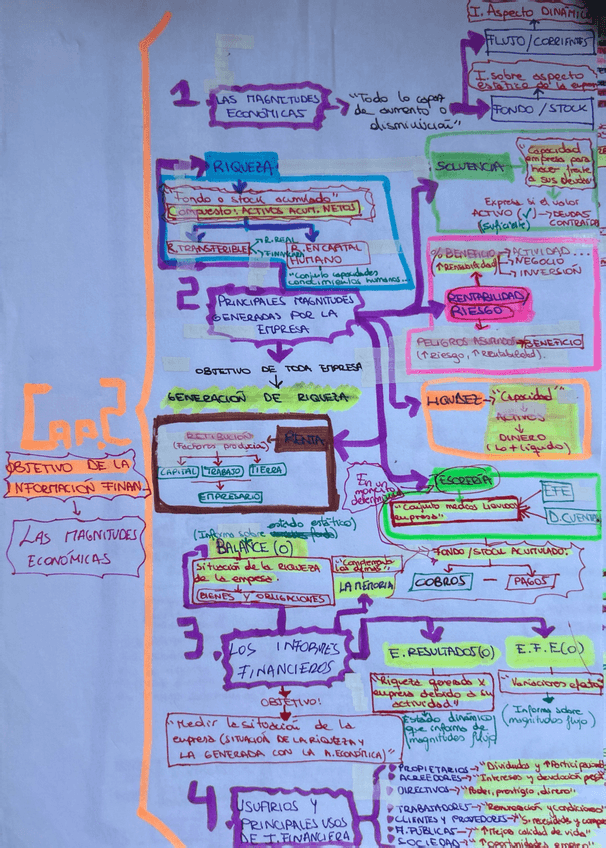 Cap.2
OBJETIVO DE LA
INFORMACIÓN FINAN...
LAS MAGNITUDES
ECONÓMICAS
1
LAS MAGNITUDES
ECONÓMICAS
"Todo lo capaz
de aumento o
disminución"
I. Aspecto DINÁMIC
FLUJO/CORRIENTES
I. sobre aspecto
estático de la em
FONDO/STOCK
RIQUEZA
"Fondo o stock acumulado"
Compuesto: ACTIVOS ACUM. NETOS
R. TRANSFERIBLE
R. REAL
FINANCIERA
R. EN CAPITAL
HUMANO
"Conjunto capacidades
conocimientos humanos...
SOLVENCIA
"Capacidad
empresa para
hacer frente
a sus deudas"
Expresa si el valor
ACTIVO (✓) → DEUDAS
(suficiente) CONTRAÍDAS
2
PRINCIPALES MAGNITUDES
GENERADAS POR LA
EMPRESA
% BENEFICIO
↑Rentabilidad
ACTIVIDAD...
NEGOCIO
INVERSIÓN
RENTABILIDAD
RIESGO
PELIGROS ASUMIDOS → BENEFICIO
(↑riesgo, ↑rentabilidad).
OBJETIVO DE TODA EMPRESA
GENERACIÓN DE RIQUEZA
RETRIBUCIÓN
(Factores productivos)
RENTA
CAPITAL
TRABAJO
TIERRA
EMPRESARIO
LIQUIDEZ → "Capacidad"
ACTIVOS
DINERO
(lo + líquido)
En un
momento
determinado
TESORERÍA
"Conjunto medios líquidos
empresa"
EFE
D. CUENTAS
FONDO/STOCK ACUMULADO:
COBROS - PAGOS
estado estático)
(Informa sobre
BALANCE (O)
Situación de la RIQUEZA
de la empresa:
BIENES Y OBLIGACIONES
"Complementa
los demás"
LA MEMORIA
3.
LOS INFORMES
FINANCIEROS
OBJETIVO!
"Medir la situación de la
empresa (SITUACIÓN DE LA RIQUEZA Y
LA GENERADA CON LA A. ECONÓMICA)"
E. RESULTADOS (O)
"Riqueza generada x
empresa debido a su
actividad."
Estado dinámico
que informa de
magnitudes flujo"
E.F.E (O)
"Variaciones efectivo"
(Informa sobre
magnitudes flujo)
4
USUARIOS Y
PRINCIPALES USOS
DE I. FINANCIERA
PROPIETARIOS → "Dividendos y
ACREEDORES → "Intereses y devolución
DIRECTIVOS → "Poder, prestigio, dinero"
TRABAJADORES → "Remuneración y condiciones"
CLIENTES Y PROVEEDORES →
A. PÚBLICAS → "↑Mejor calidad de vida"
SOCIEDAD → "↑oportunidades empleo"